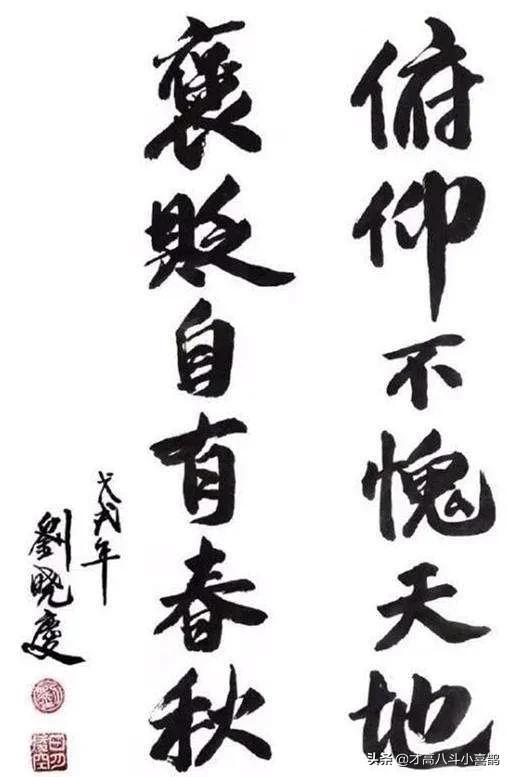 俯仰不愧天地
褒貶自有春秋
戊戌年
劉曉慶
头条@才高八斗小喜鹊